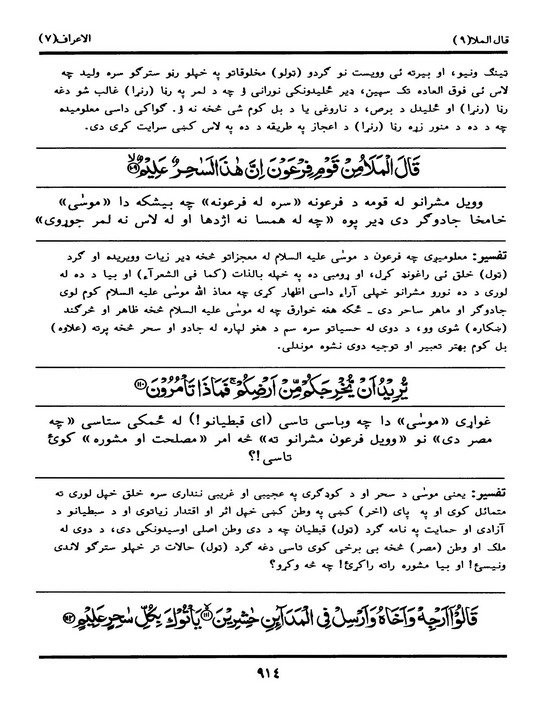 قال الملا(۹)
الاعراف(۷)
تينگ ونيو، او بيرته ئى وويست نو گردو (تولو) مخلوقاتو په خپلو رڼو سترگو سره وليد چه
لاس ئى فوق العاده تک سپين، ډير ځليدونکى نورانى ؤ چه د لمر په رڼا (رنړا) غالب شو دغه
رڼا (رنړا) او ځليدل د برص، د ناروغى يا د بل کوم شى څخه نه ؤ. گواکى داسى معلوميده
چه د ده د منور زړه رڼا (رنړا) د اعجاز په طريقه د ده په لاس کښى سرايت کړى دى.
قَالَ الْمَلَأُ مِنْ قَوْمِ فِرْعَوْنَ اِنَّ هٰذَا لَسٰحِرٌ عَلِيْمٌ ﴿۱۰۹﴾
وويل مشرانو له قومه د فرعونه «سره له فرعونه» چه بيشکه دا «موسٰى»
خامخا جادوگر دى ډير پوه «چه له همسا نه اژدها او له لاس نه لمر جوړوى»
تفسير: معلوميږى چه فرعون د موسٰى عليه السلام له معجزاتو څخه ډير زيات وويريده او گرد
(تول) خلق ئى راغونډ کړل، او ړومبى ده په خپله بالذات (کما فى الشعرآء) او بيا د ده له
لورى د ده نورو مشرانو خپلى آراء داسى اظهار کړى چه معاذ الله موسٰى عليه السلام کوم لوى
جادوگر او ماهر ساحر دى - ځکه هغه خوارق چه له موسٰى عليه السلام څخه ظاهر او څرگند
(ښکاره) شوى وو، د دوى له حسياتو سره سم د هغو لپاره له جادو او سحر څخه پرته (علاوه)
بل کوم بهتر تعبير او توجيه دوى نشوه موندلى.
يُّرِيْدُ اَنْ يُّخْرِجَكُمْ مِّنْ اَرْضِكُمْ ۚ فَمَاذَا تَاْمُرُوْنَ ﴿۱۱۰﴾
غواړى «موسٰى» دا چه وباسى تاسى (اى قبطيانو!) له ځمکى ستاسى «چه
مصر دى» نو «وويل فرعون مشرانو ته» څه امر «مصلحت او مشوره» کوئ
تاسى!؟
تفسير: يعنى موسٰى د سحر او د کوډگرى په عجيبى او غريبى ننداري سره خلق خپل لورى ته
متمائل کوى او په پاى (اخر) کښى په وطن کښى خپل اثر او اقتدار زياتوى او د سبطيانو د
آزادى او حمايت په نامه گرد (تول) قبطيان چه د دى وطن اصلى اوسيدونکى دى، د دوى له
ملک او وطن (مصر) څخه بى برخى کوى تاسى دغه گرد (تول) حالات تر خپلو سترگو لاندى
ونيسئ! او بيا مشوره راته راکړئ! چه څه وکړو؟
قَالُوْٓا اَرْجِهْ وَاَخَاهُ وَاَرْسِلْ فِى الْمَدَآىِٕنِ حٰشِرِيْنَ ﴿۱۱۱﴾ يَاْتُوْكَ بِكُلِّ سٰحِرٍ عَلِيْمٍ ﴿۱۱۲﴾
۹۱٤